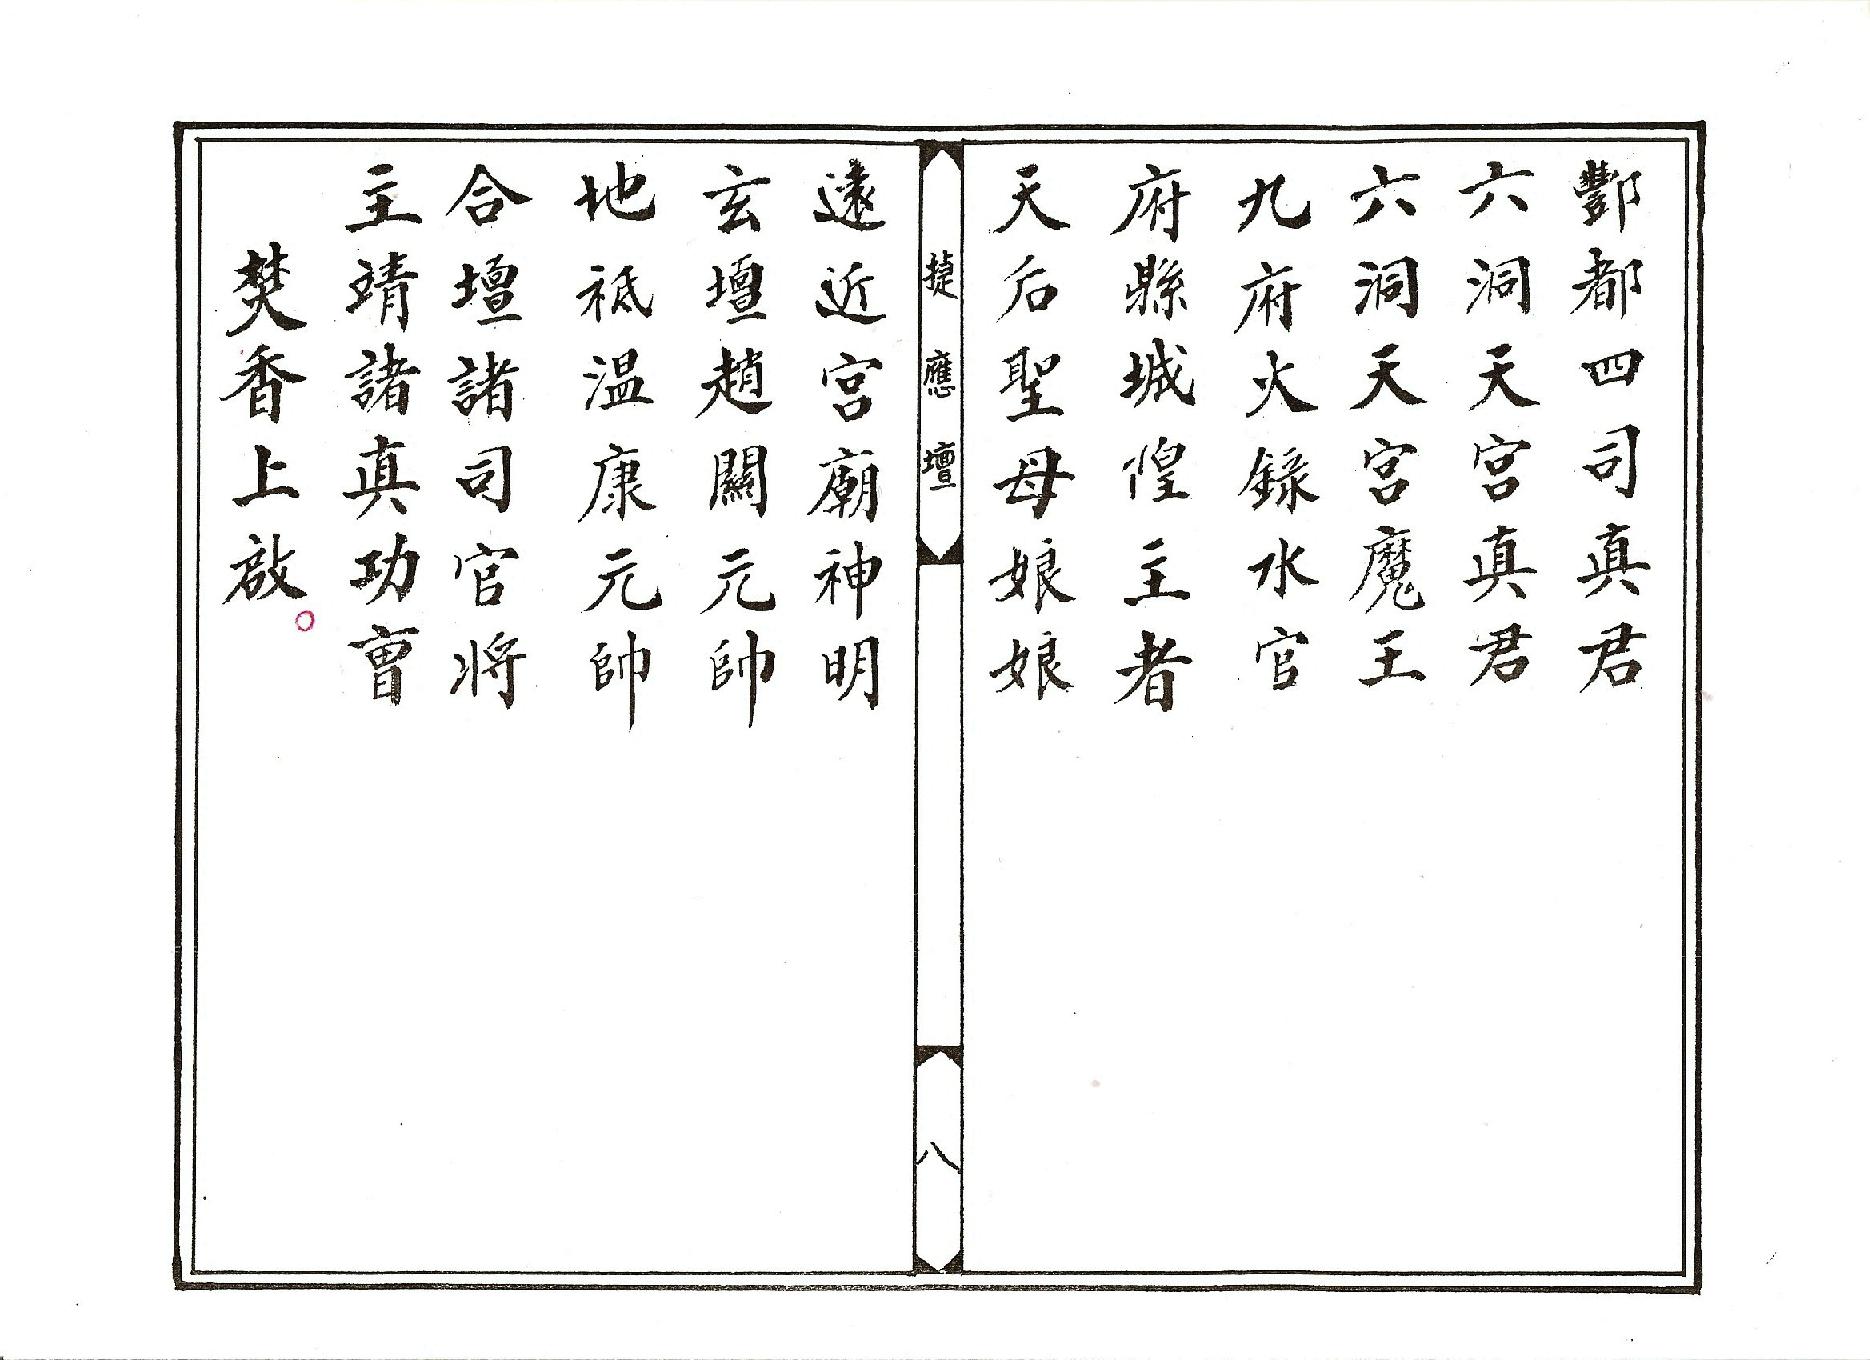 酆都四司真君
六洞天宮真君
六洞天宮魔王
九府火錄水官
府縣城隍主者
天后聖母娘娘
捷應壇
八
遠近宮廟神明
玄壇趙關元帥
地祇溫康元帥
合壇諸司官將
主靖諸真功曹
焚香上啟。